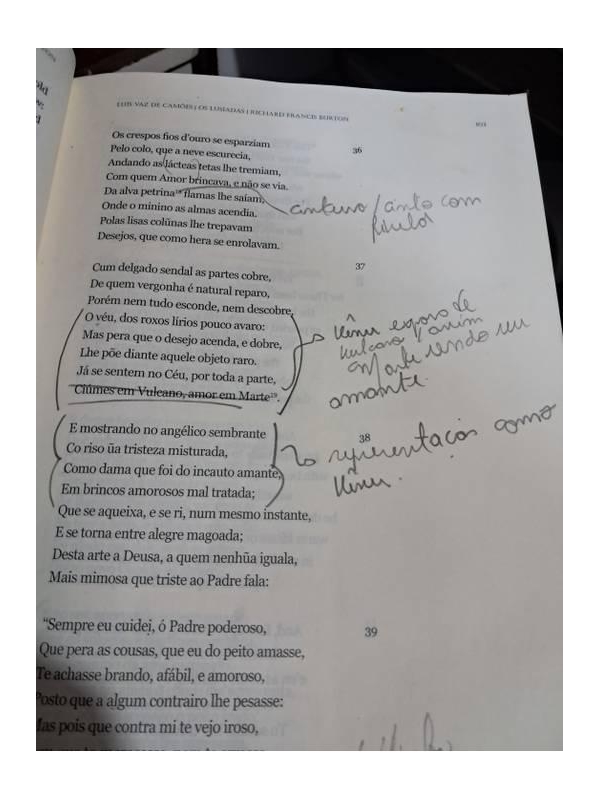 LUIS VAZ DE CAMÕES | OS LUSIADAS | RICHARD FRANCIS BURTON
103
36
Os crespos fios d'ouro se esparziam
Pelo colo, que a neve escurecia,
Andando as lácteas tetas lhe tremiam,
Com quem Amor brincava, e não se via.
Da alva petrina¹⁸ flamas lhe saíam,
Onde o minino as almas acendia.
Polas lisas colũnas lhe trepavam
Desejos, que como hera se enrolavam.
cinturão / cinto com
fivela
37
Cum delgado sendal as partes cobre,
De quem vergonha é natural reparo,
Porém nem tudo esconde, nem descobre,
O véu, dos roxos lírios pouco avaro:
Mas pera que o desejo acenda, e dobre,
Lhe põe diante aquele objeto raro.
Já se sentem no Céu, por toda a parte,
Ciúmes em Vulcano, amor em Marte¹⁹.
Vênus esposa de
Vulcano /
Marte sendo um
amante.
38
E mostrando no angélico sembrante
Co riso ũa tristeza misturada,
Como dama que foi do incauto amante,
Em brincos amorosos mal tratada;
Que se aqueixa, e se ri, num mesmo instante,
E se torna entre alegre magoada;
Desta arte a Deusa, a quem nenhũa iguala,
Mais mimosa que triste ao Padre fala:
representação como
Vênus.
39
"Sempre eu cuidei, ó Padre poderoso,
Que pera as cousas, que eu do peito amasse,
Te achasse brando, afábil, e amoroso,
Posto que a algum contrairo lhe pesasse:
Mas pois que contra mi te vejo iroso,